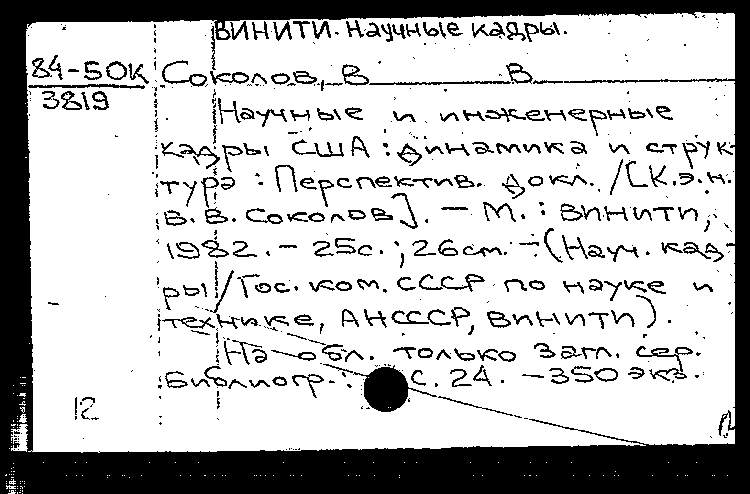 ВИНИТИ. Научные кадры.
84-5OK
3819
Соколов, В В
Научные и инженерные
кадры США : динамика и струк-
тура : Перспектив. докл. / [К.э.н.
В.В. Соколов]. – М. : ВИНИТИ,
1982. – 25с. ; 26см. – (Науч. кад-
ры / Гос. ком. СССР по науке и
технике, АНСССР, ВИНИТИ).
На обл. только загл. сер.
Библиогр.: с. 24. – 350 экз.
12